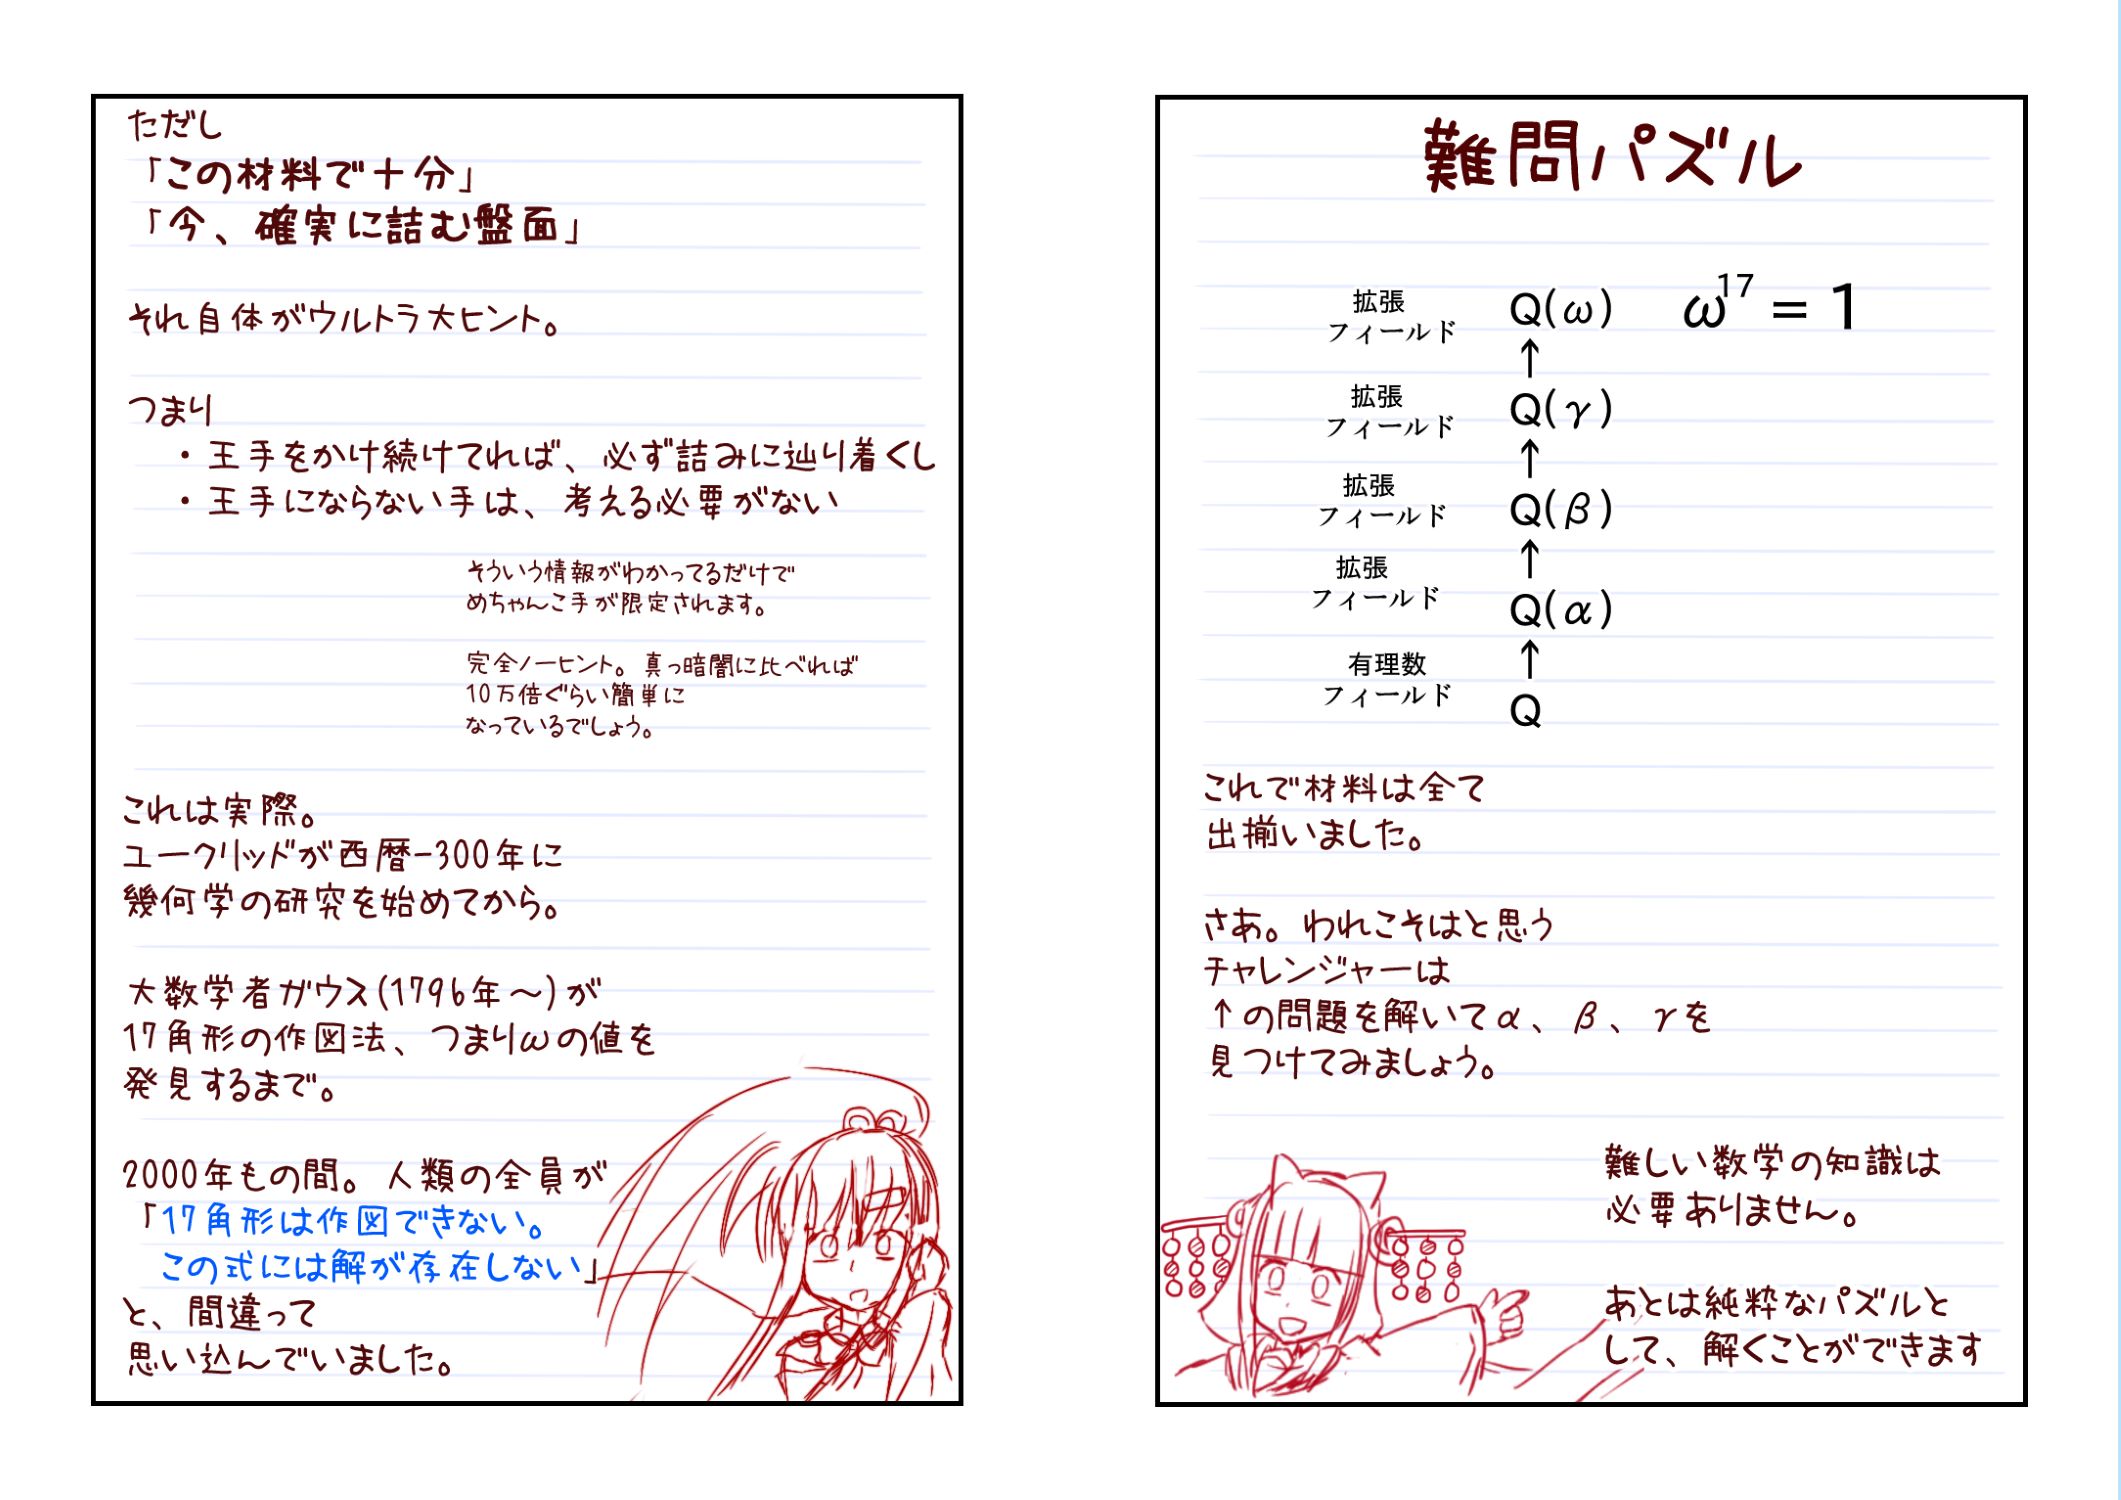 ただし
「この材料で十分」
「今、確実に詰む盤面」
それ自体がウルトラ大ヒント。
つまり
・王手をかけ続けてれば、必ず詰みに辿り着くし
・王手にならない手は、考える必要がない
そういう情報がわかってるだけで
めちゃんこ手が限定されます。
完全ノーヒント。真っ暗闇に比べれば
10万倍ぐらい簡単に
なっているでしょう。
これは実際。
ユークリッドが西暦-300年に
幾何学の研究を始めてから。
大数学者ガウス(1796年～)が
17角形の作図法、つまりωの値を
発見するまで。
2000年もの間。人類の全員が
「17角形は作図できない。
この式には解が存在しない」
と、間違って
思い込んでいました。
難問パズル
拡張
フィールド
Q(ω) ω^17 = 1
↑
拡張
フィールド
Q(γ)
↑
拡張
フィールド
Q(β)
↑
拡張
フィールド
Q(α)
↑
有理数
フィールド
Q
これで材料は全て
出揃いました。
さあ。われこそはと思う
チャレンジャーは
↑の問題を解いてα、β、γを
見つけてみましょう。
難しい数学の知識は
必要ありません。
あとは純粋なパズルと
して、解くことができます